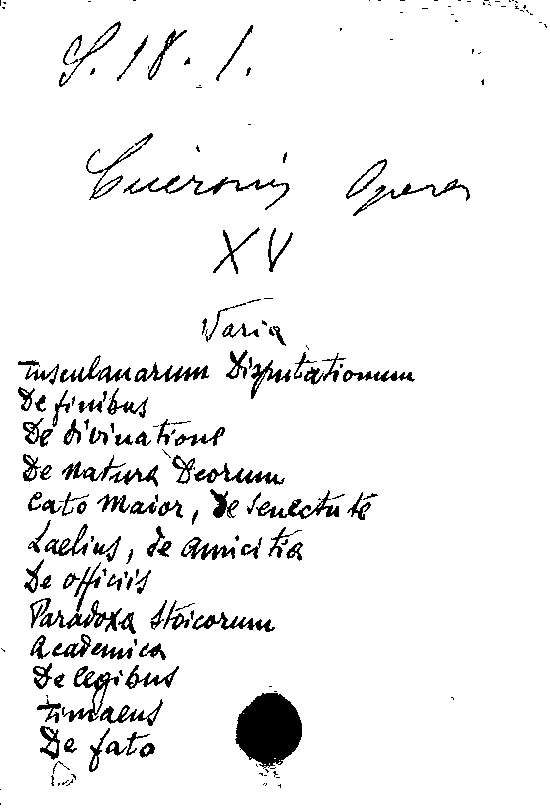 S. 18. 1.
Ciceronis Opera
XV
Varia
Tusculanarum Disputationum
De finibus
De divinatione
De natura Deorum
Cato Maior, De Senectute
Laelius, de amicitia
De officiis
Paradoxa Stoicorum
Academica
De legibus
Timaeus
De fato